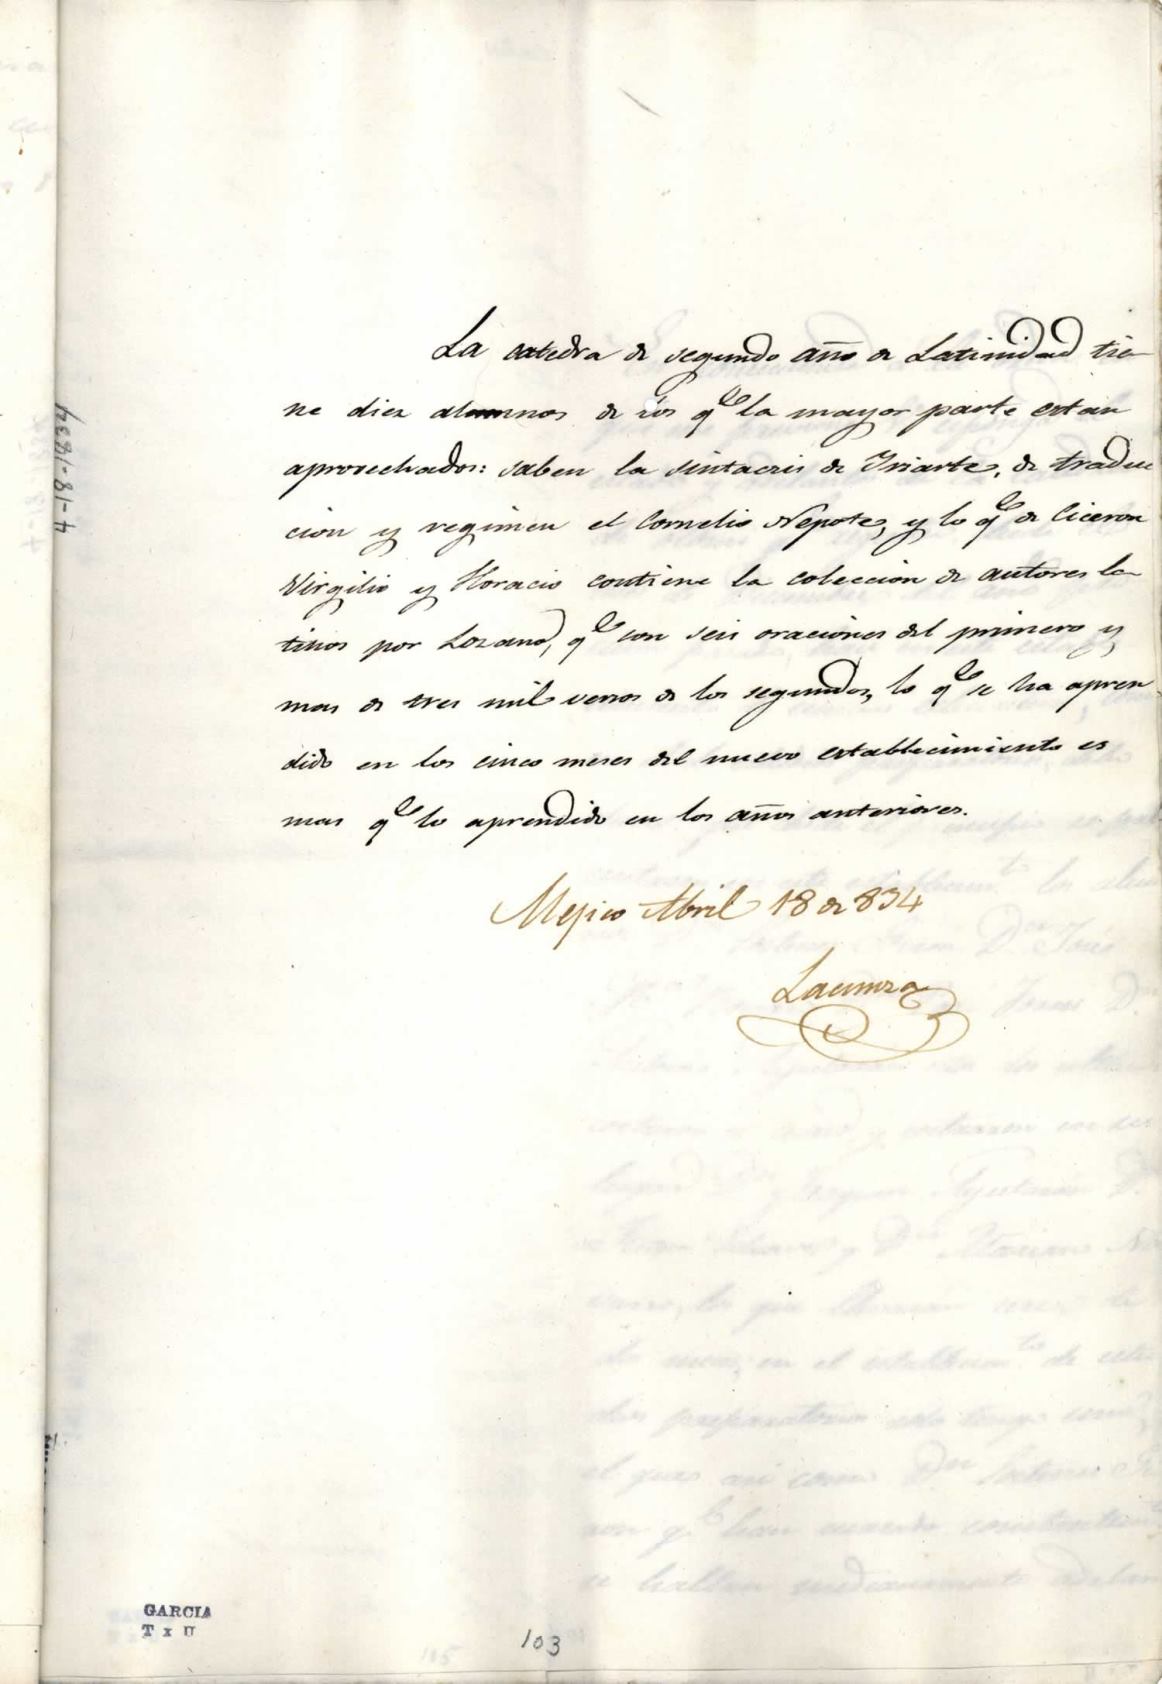 La catedra de segundo año de Latinidad tie-
ne diez alumnos de los qᵉ la mayor parte estan
aprovechados: saben la sintacsis de Iriarte, de traduc
cion y regimen el Cornelio Nepote, y lo qᵉ de Ciceron
Virgilio y Horacio contiene la coleccion de autores la-
tinos por Lozano, qᵉ son seis oraciones del primero y
mas de tres mil versos de los segundos, lo qᵉ se ha apren
dido en los cinco meses del nuevo establecimiento es
mas qᵉ lo aprendido en los años anteriores.
Mejico Abril 18 de 834
Lacunza
4-18-1834
GARCIA
T x U
103